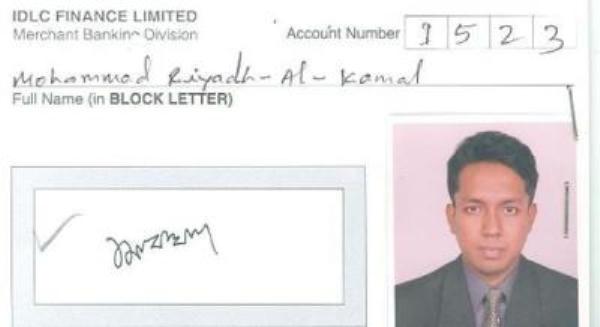 IDLC FINANCE LIMITED
Merchant Banking Division
Account Number 1 5 2 3
Mohammad Riyadh-Al-Kamal
Full Name (in BLOCK LETTER)